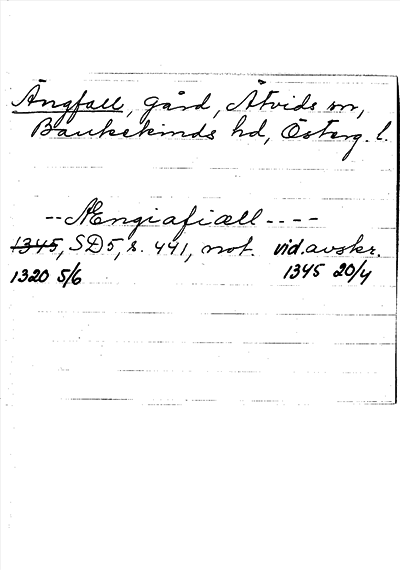 Ängfall, gård, Åtvids sn,
Bankekinds hd, Österg. l.
-- Ængiafiæll ----
1345, SD5, s. 441, not. vid. avskr.
1320 5/6 1345 20/4